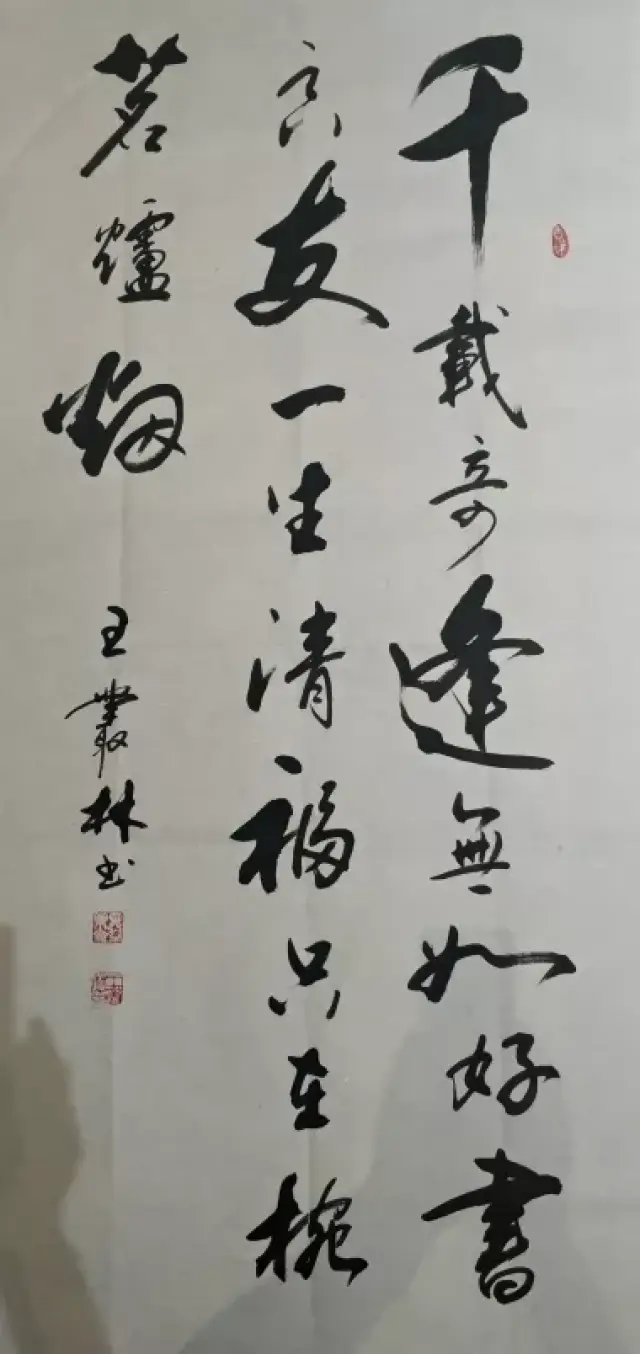 千載奇逢無如好書
良友一生清福只在椀
茗爐烟
王叢林书